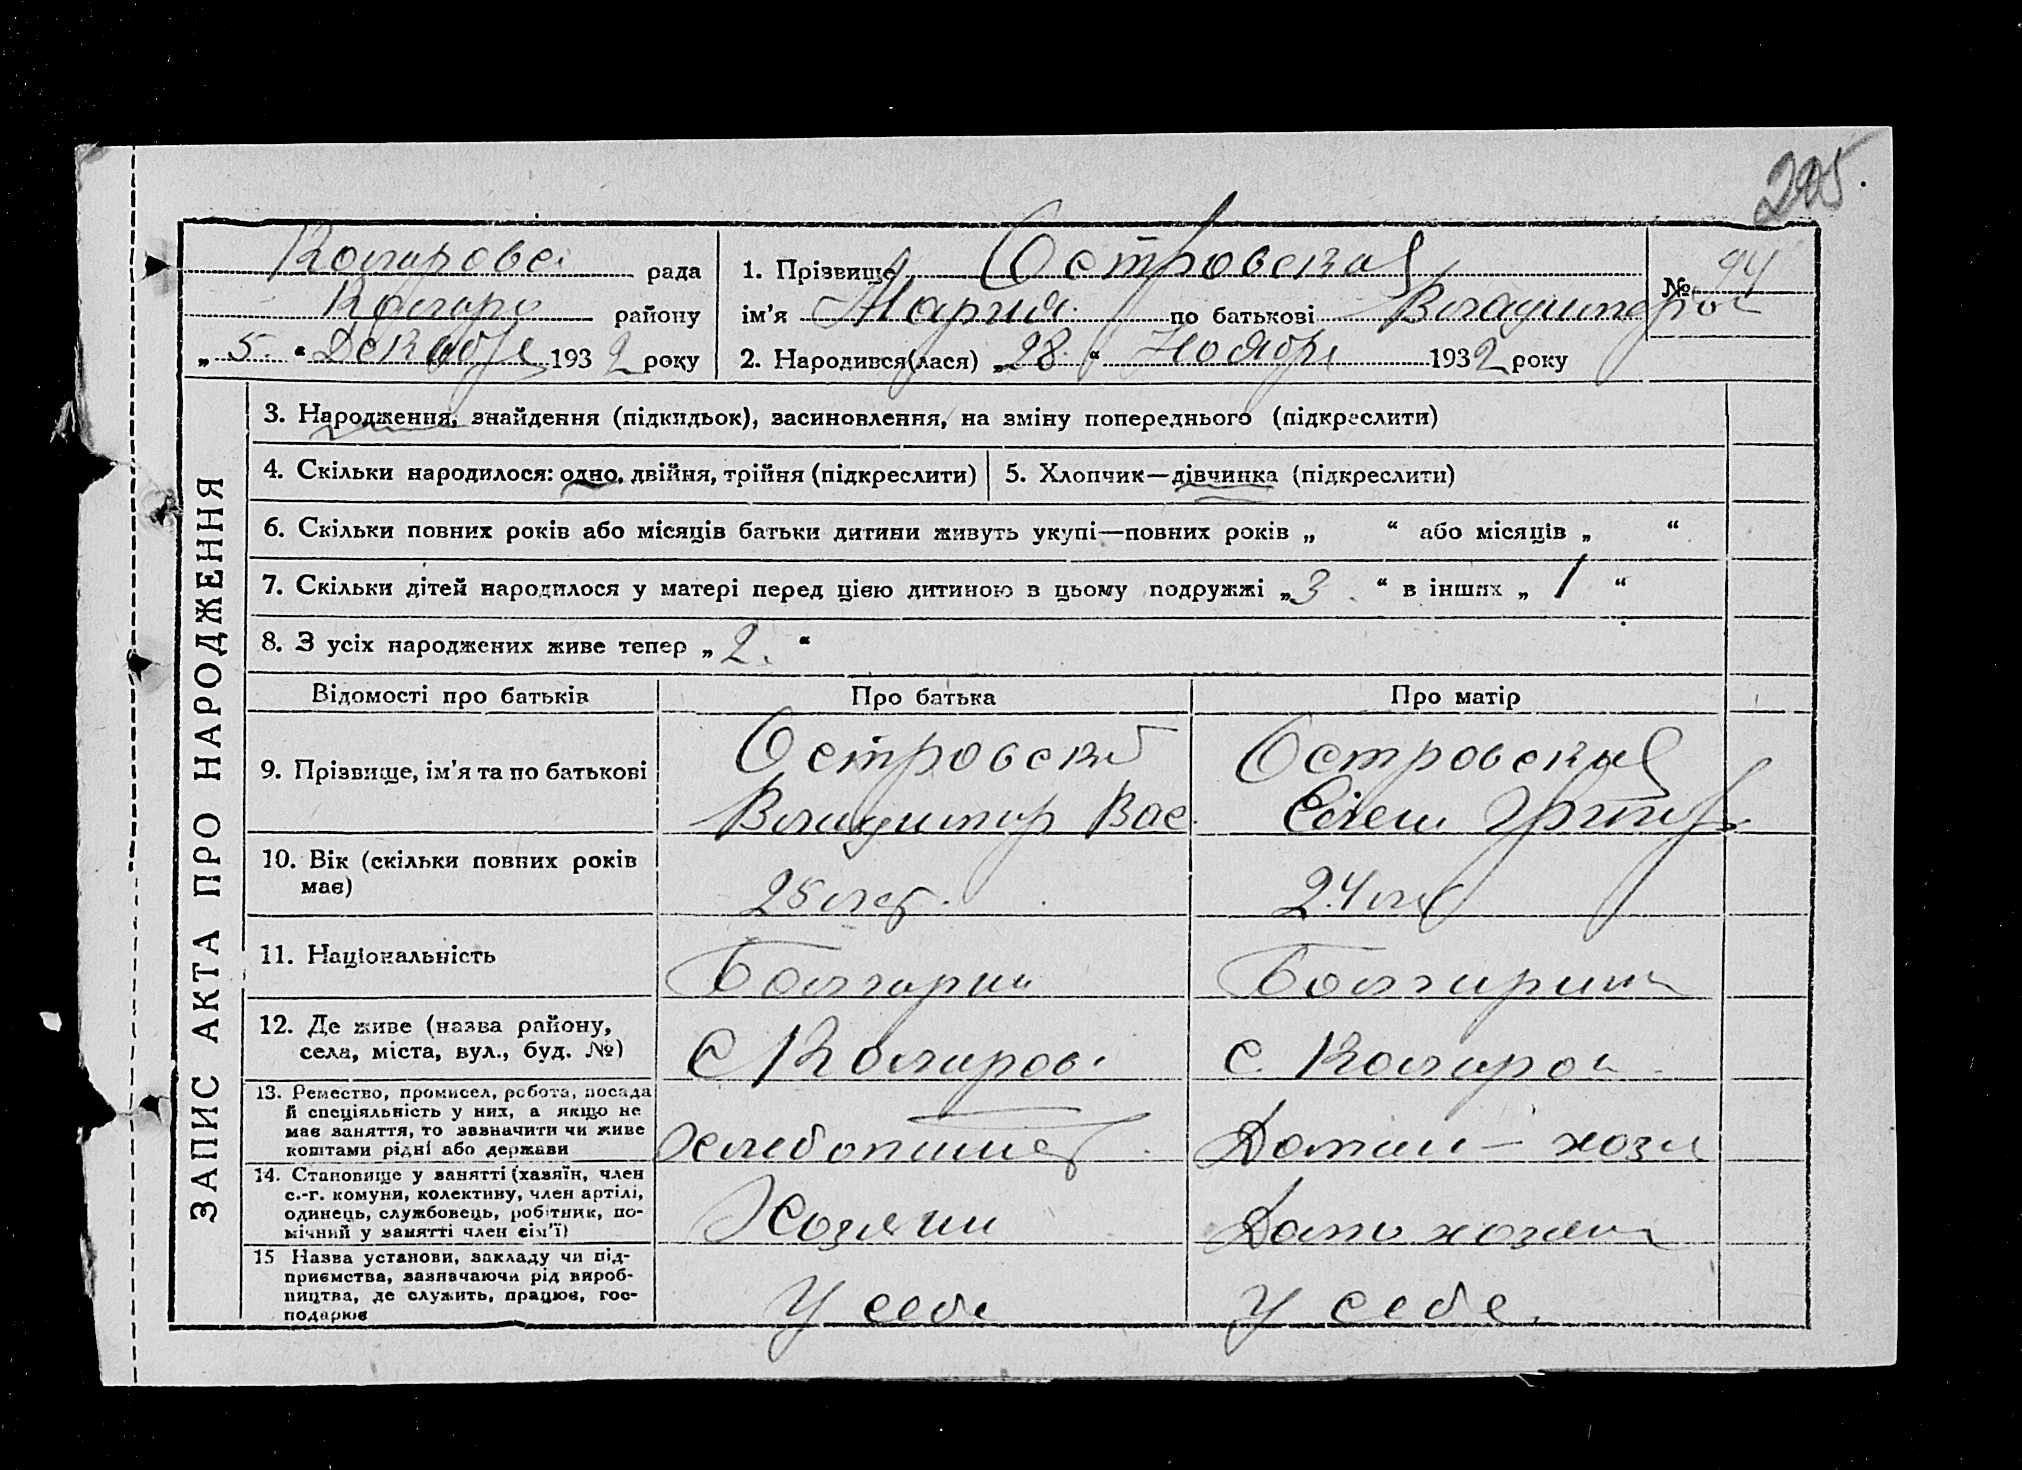 205.
Коларовс рада
Коларо району
„ 5. “ Декабря 1932 року
1. Прізвище Островская
ім’я Мария по батькові Владимиров
№ 94
2. Народився(лася) „ 28. “ Ноября 1932 року
ЗАПИС АКТА ПРО НАРОДЖЕННЯ
3. Народження, знайдення (підкидьок), засиновлення, на зміну попереднього (підкреслити)
4. Скільки народилося: одно, двійня, трійня (підкреслити)
5. Хлопчик—дівчинка (підкреслити)
6. Скільки повних років або місяців батьки дитини живуть укупі—повних років „ “ або місяців „ “
7. Скільки дітей народилося у матері перед цією дитиною в цьому подружжі „ 3 “ в інших „ 1 “
8. З усіх народжених живе тепер „ 2. “
Відомості про батьків
Про батька
Про матір
9. Прізвище, ім’я та по батькові
Островский
Владимир Вас
Островская
10. Вік (скільки повних років
має)
25 лет.
24 лет
11. Національність
Болгарин
Болгарин
12. Де живе (назва району,
села, міста, вул., буд. №)
С Коларов
с. Коларов
13. Ремество, промисел, робота, посада
й спеціяльність у них, а якщо не
має заняття, то зазначити чи живе
коштами рідні або держави
Хлебопашец
Домаш — хозя
14. Становище у занятті (хазяїн, член
с.-г. комуни, колективу, член артілі,
одинець, службовець, робітник, по-
мічний у занятті член сім’ї)
Хозяин
Домохозяин
15 Назва установи, закладу чи під-
приємства, зазначаючи рід вироб-
ництва, де служить, працює, гос-
подарює
У себе
У себе.